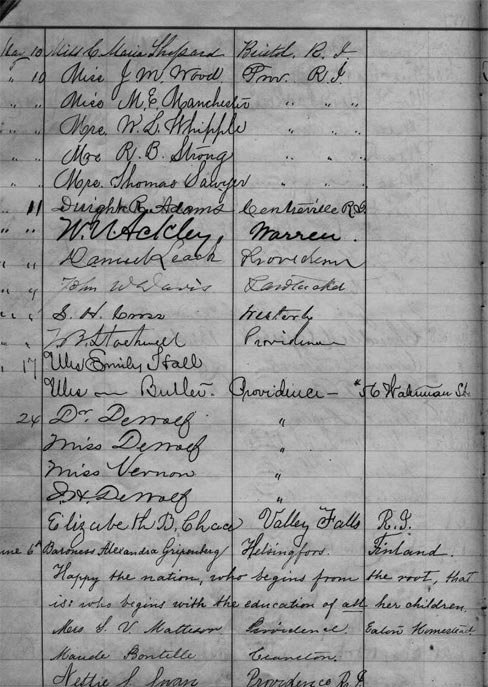 10 Miss C. Maria Shepard Bristol, R. I
" 10 Miss J. M. Wood Prov. R. I.
" " Miss M. E. Manchester " " "
" " Mrs. W. L. Whipple " " "
" " Mrs R. B. Strong " " "
" " Mrs. Thomas Sawyer " " "
" 11 Dwight R. Adams Centreville R. I.
" " W. U. Ackley Warren.
" " Daniel Leach Providence
" " Tom W Davis Pawtucket
" " S. H. Cross Westerly
" Stockwell Providence
" 17 Mrs Emily Hall
Mrs Butler. Providence - "56 Waterman St.
24 Dr. DeWolf "
Miss DeWolf "
Miss Vernon "
J. H. DeWolf "
Elizabeth B. Chace Valley Falls R. I.
6th Baroness Alexandra Gripenberg Helsingfors. Finland.
Happy the nation, who begins from the root, that
is: who begins with the education of all her children.
Mrs S. V. Matteson Providence. Eaton Homestead
Maude Bontelle Cranston.
Nettie S. Swan Providence R. I.